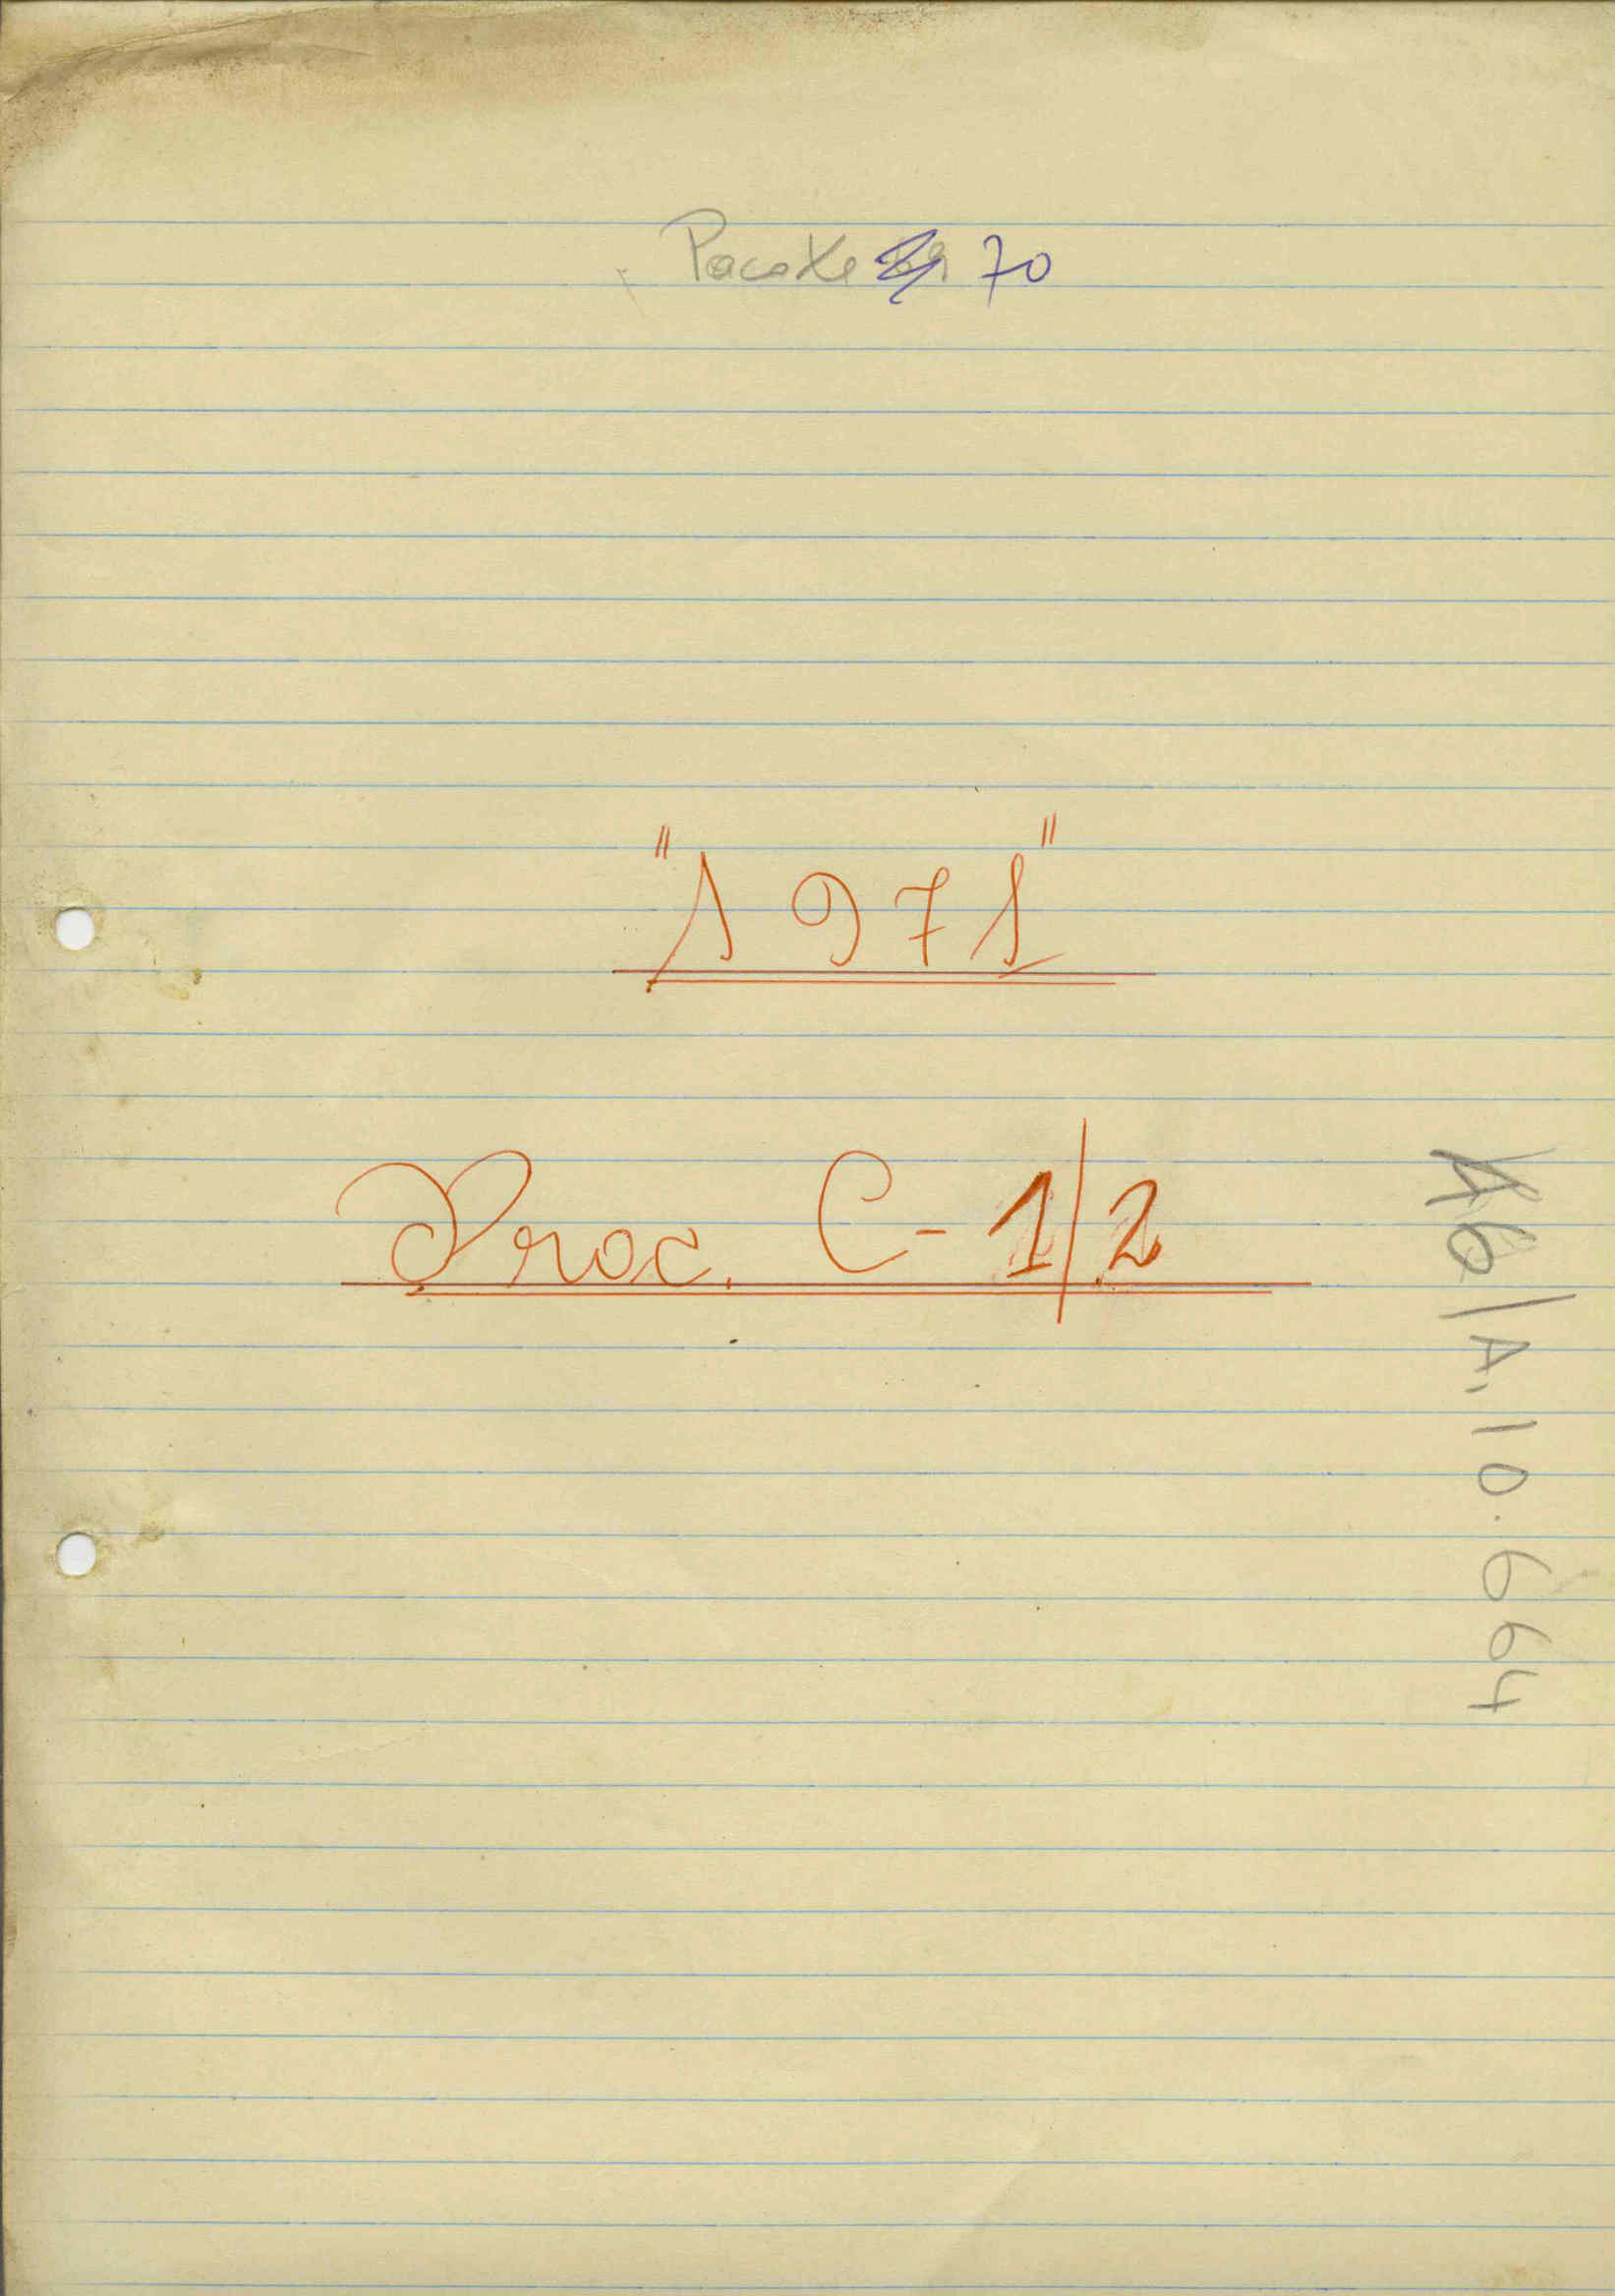 Pacote 70
"1971"
Proc. C-1/2
A6/A.10.664